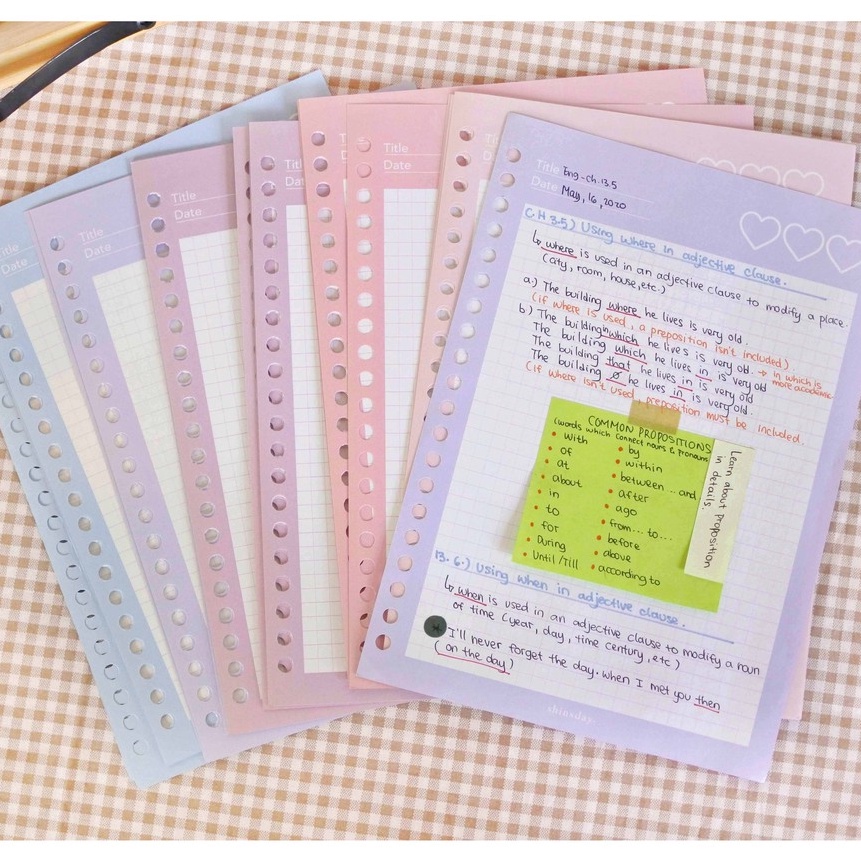 Title
Date
Title
Date
Title
Date
Title
Date
Title
Date
Title Eng-ch.13.5
Date May, 16, 2020
CH 3.5) Using where in adjective clause.
↳ where is used in an adjective clause to modify a place.
(city, room, house, etc.)
a.) The building where he lives is very old.
(if where is used, a preposition isn't included)
b) The building which he lives is very old.
The building which he lives in is very old → in which is
The building that he lives in is very old more academic
The building ø he lives in is very old.
(if where isn't used, preposition must be included.
COMMON PROPOSITIONS
(words which connect nouns & pronouns
• with
• of
• at
• about
• in
• to
• for
• During
• Until /Till
• by
• within
• between ... and
• after
• ago
• from... to...
• before
• above
• according to
Learn about Proposition
in details.
13. 6.) Using when in adjective clause.
↳ when is used in an adjective clause to modify a noun
of time (year, day, time century, etc)
* I'll never forget the day. when I met you then
(on the day)
shinaday